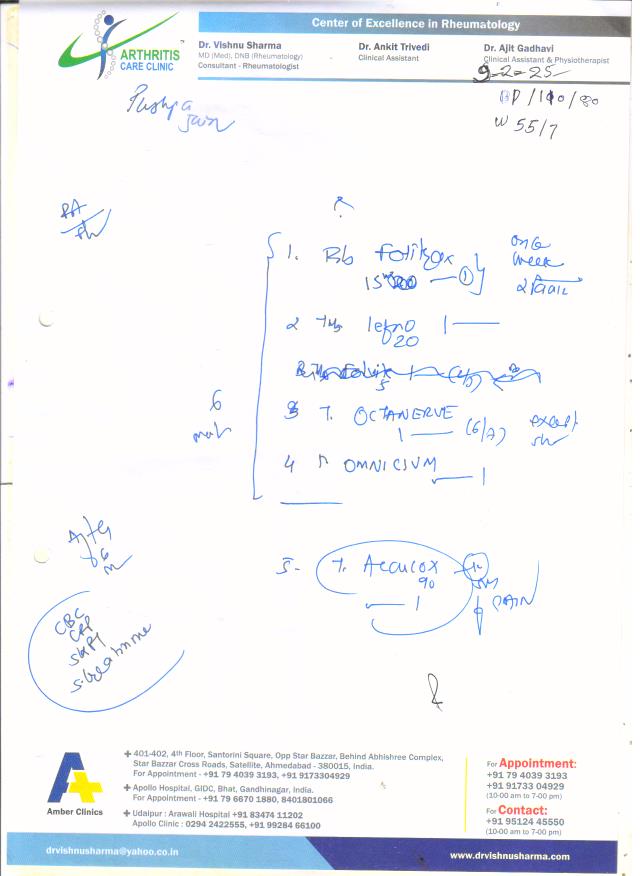 Center of Excellence in Rheumatology
ARTHRITIS
CARE CLINIC
Dr. Vishnu Sharma
MD (Med), DNB (Rheumatology)
Consultant - Rheumatologist
Dr. Ankit Trivedi
Clinical Assistant
Dr. Ajit Gadhavi
Clinical Assistant & Physiotherapist
9-2-25
BP/110/80
W 55/7
Pushpa
Jain
RA
1. Rb Folitrax
15
1
once
week
2 Tab lefno 1
20
3 T. OCTANERVE
1 (6/7) except
4 OMNICIUM
1
6
After
6
m
5- T. Acecox
90
1
PAIN
CBC
CRP
SGPT
S.Creatinine
Amber Clinics
401-402, 4th Floor, Santorini Square, Opp Star Bazzar, Behind Abhishree Complex,
Star Bazzar Cross Roads, Satellite, Ahmedabad - 380015, India.
For Appointment - +91 79 4039 3193, +91 9173304929
Apollo Hospital, GIDC, Bhat, Gandhinagar, India.
For Appointment - +91 79 6670 1880, 8401801066
Udaipur : Arawali Hospital +91 83474 11202
Apollo Clinic : 0294 2422555, +91 99284 66100
For Appointment:
+91 79 4039 3193
+91 91733 04929
(10-00 am to 7-00 pm)
For Contact:
+91 95124 45550
(10-00 am to 7-00 pm)
drvishnusharma@yahoo.co.in
www.drvishnusharma.com